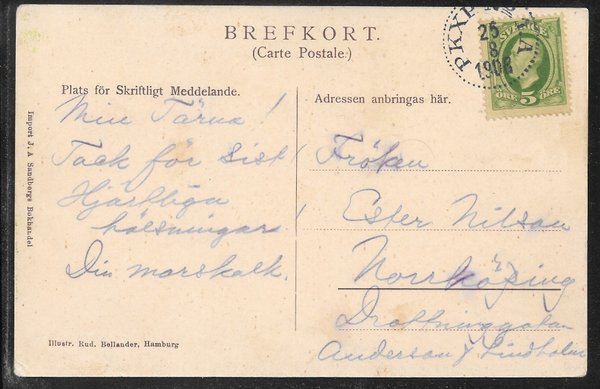 BREFKORT.
(Carte Postale.)
PKXP No 2 A
25
8
1906
SVERIGE
ÖRE 5 ÖRE
Plats för Skriftligt Meddelande.
Adressen anbringas här.
Min Tärna!
Tack för sist!
Hjärtliga
hälsningar!
Din marskalk.
Fröken
Ester Nilson
Norrköping
Drottninggatan
Anderson & Lindholm
Import J. A Sandbergs Bokhandel
Illustr. Rud. Bellander, Hamburg